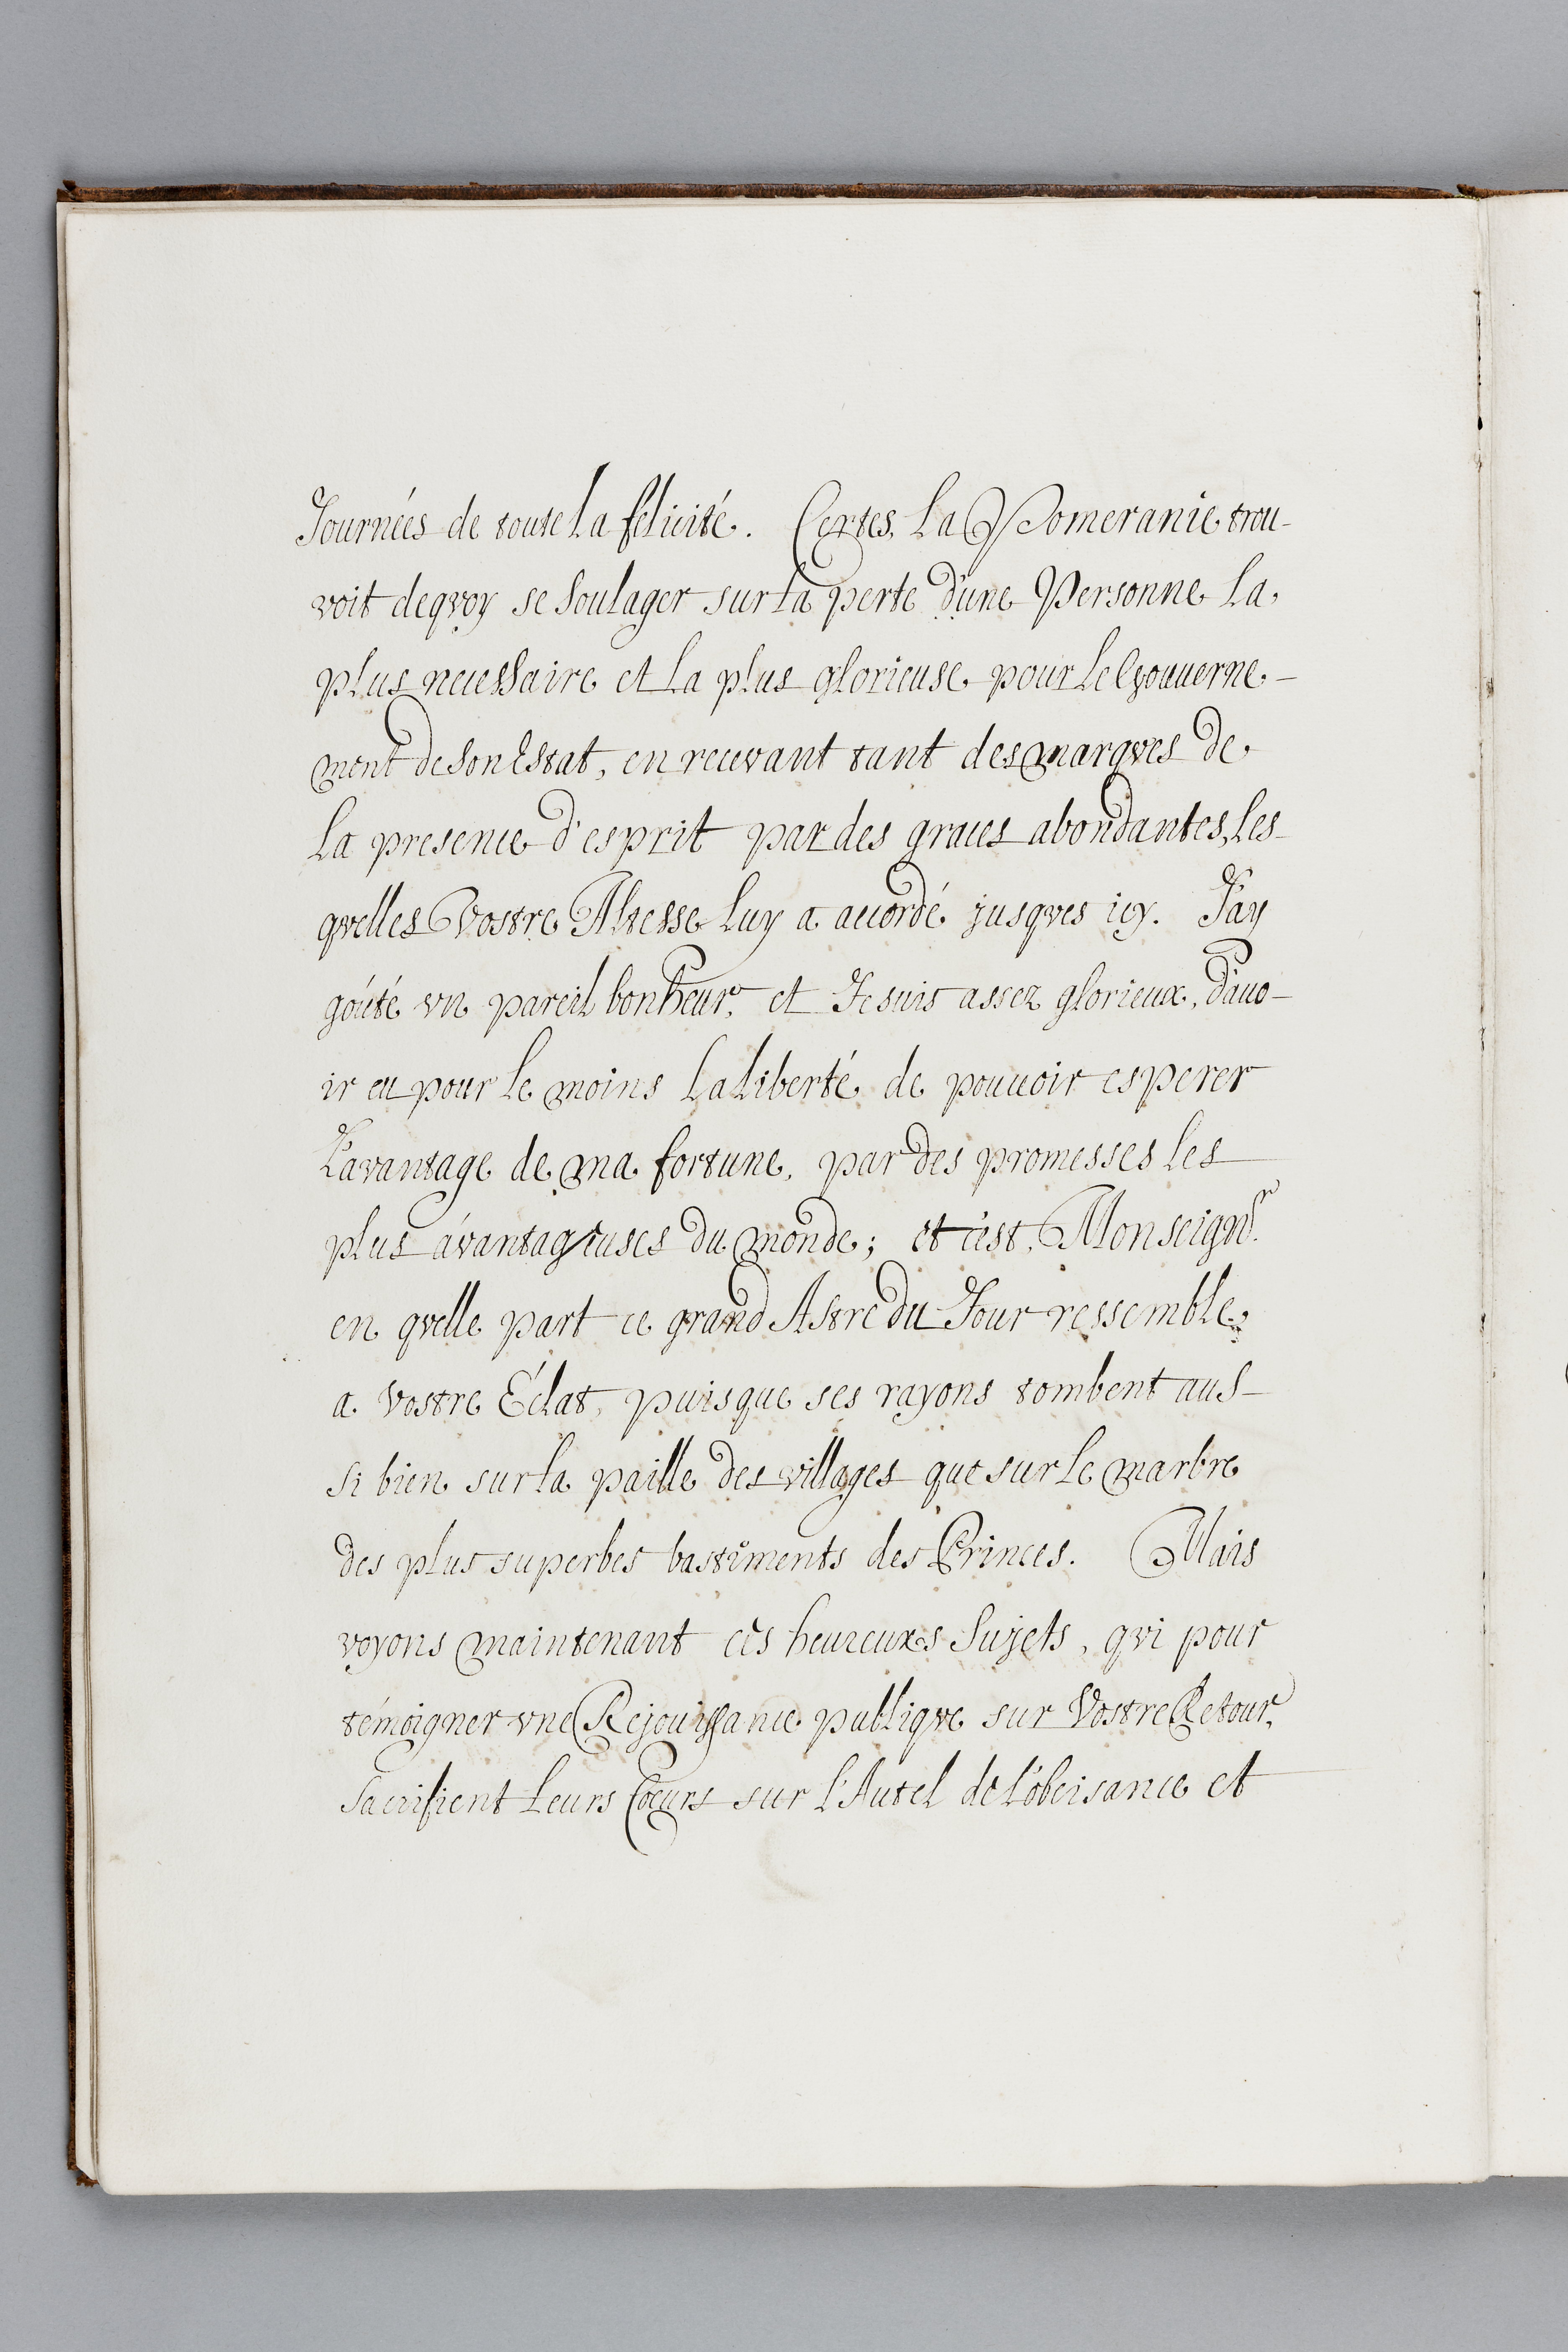 Journées de toute la felicité. Certes, la Pomeranie trou-
voit deqvoy se soulager sur la perte d'une Personne la
plus necessaire et la plus glorieuse pour le Gouuerne-
ment de son Estat, en recevant tant des marqves de
la presence d'esprit par des graces abondantes, les-
qvelles Vostre Altesse luy a accordé jusqves icy. J'ay
goúté vn pareil bonheur, et Je suis assez glorieux, d'auo-
ir eu pour le moins la liberté de pouuoir esperer
L'avantage de ma fortune, par des promesses les
plus ávantageuses du monde; et c'est, Monseignr.
en qvelle part ce grand Astre du Jour ressemble
a vostre Éclat, puisque ses rayons tombent aus-
si bien sur la paille des villages que sur le marbre
des plus superbes bastiments des Princes. Mais
voyons maintenant ces heureuxs Sujets, qvi pour
témoigner vne Rejouissance publiqve sur Vostre Retour,
Sacrifient leurs Coeurs sur l'Autel de l'obeisance et